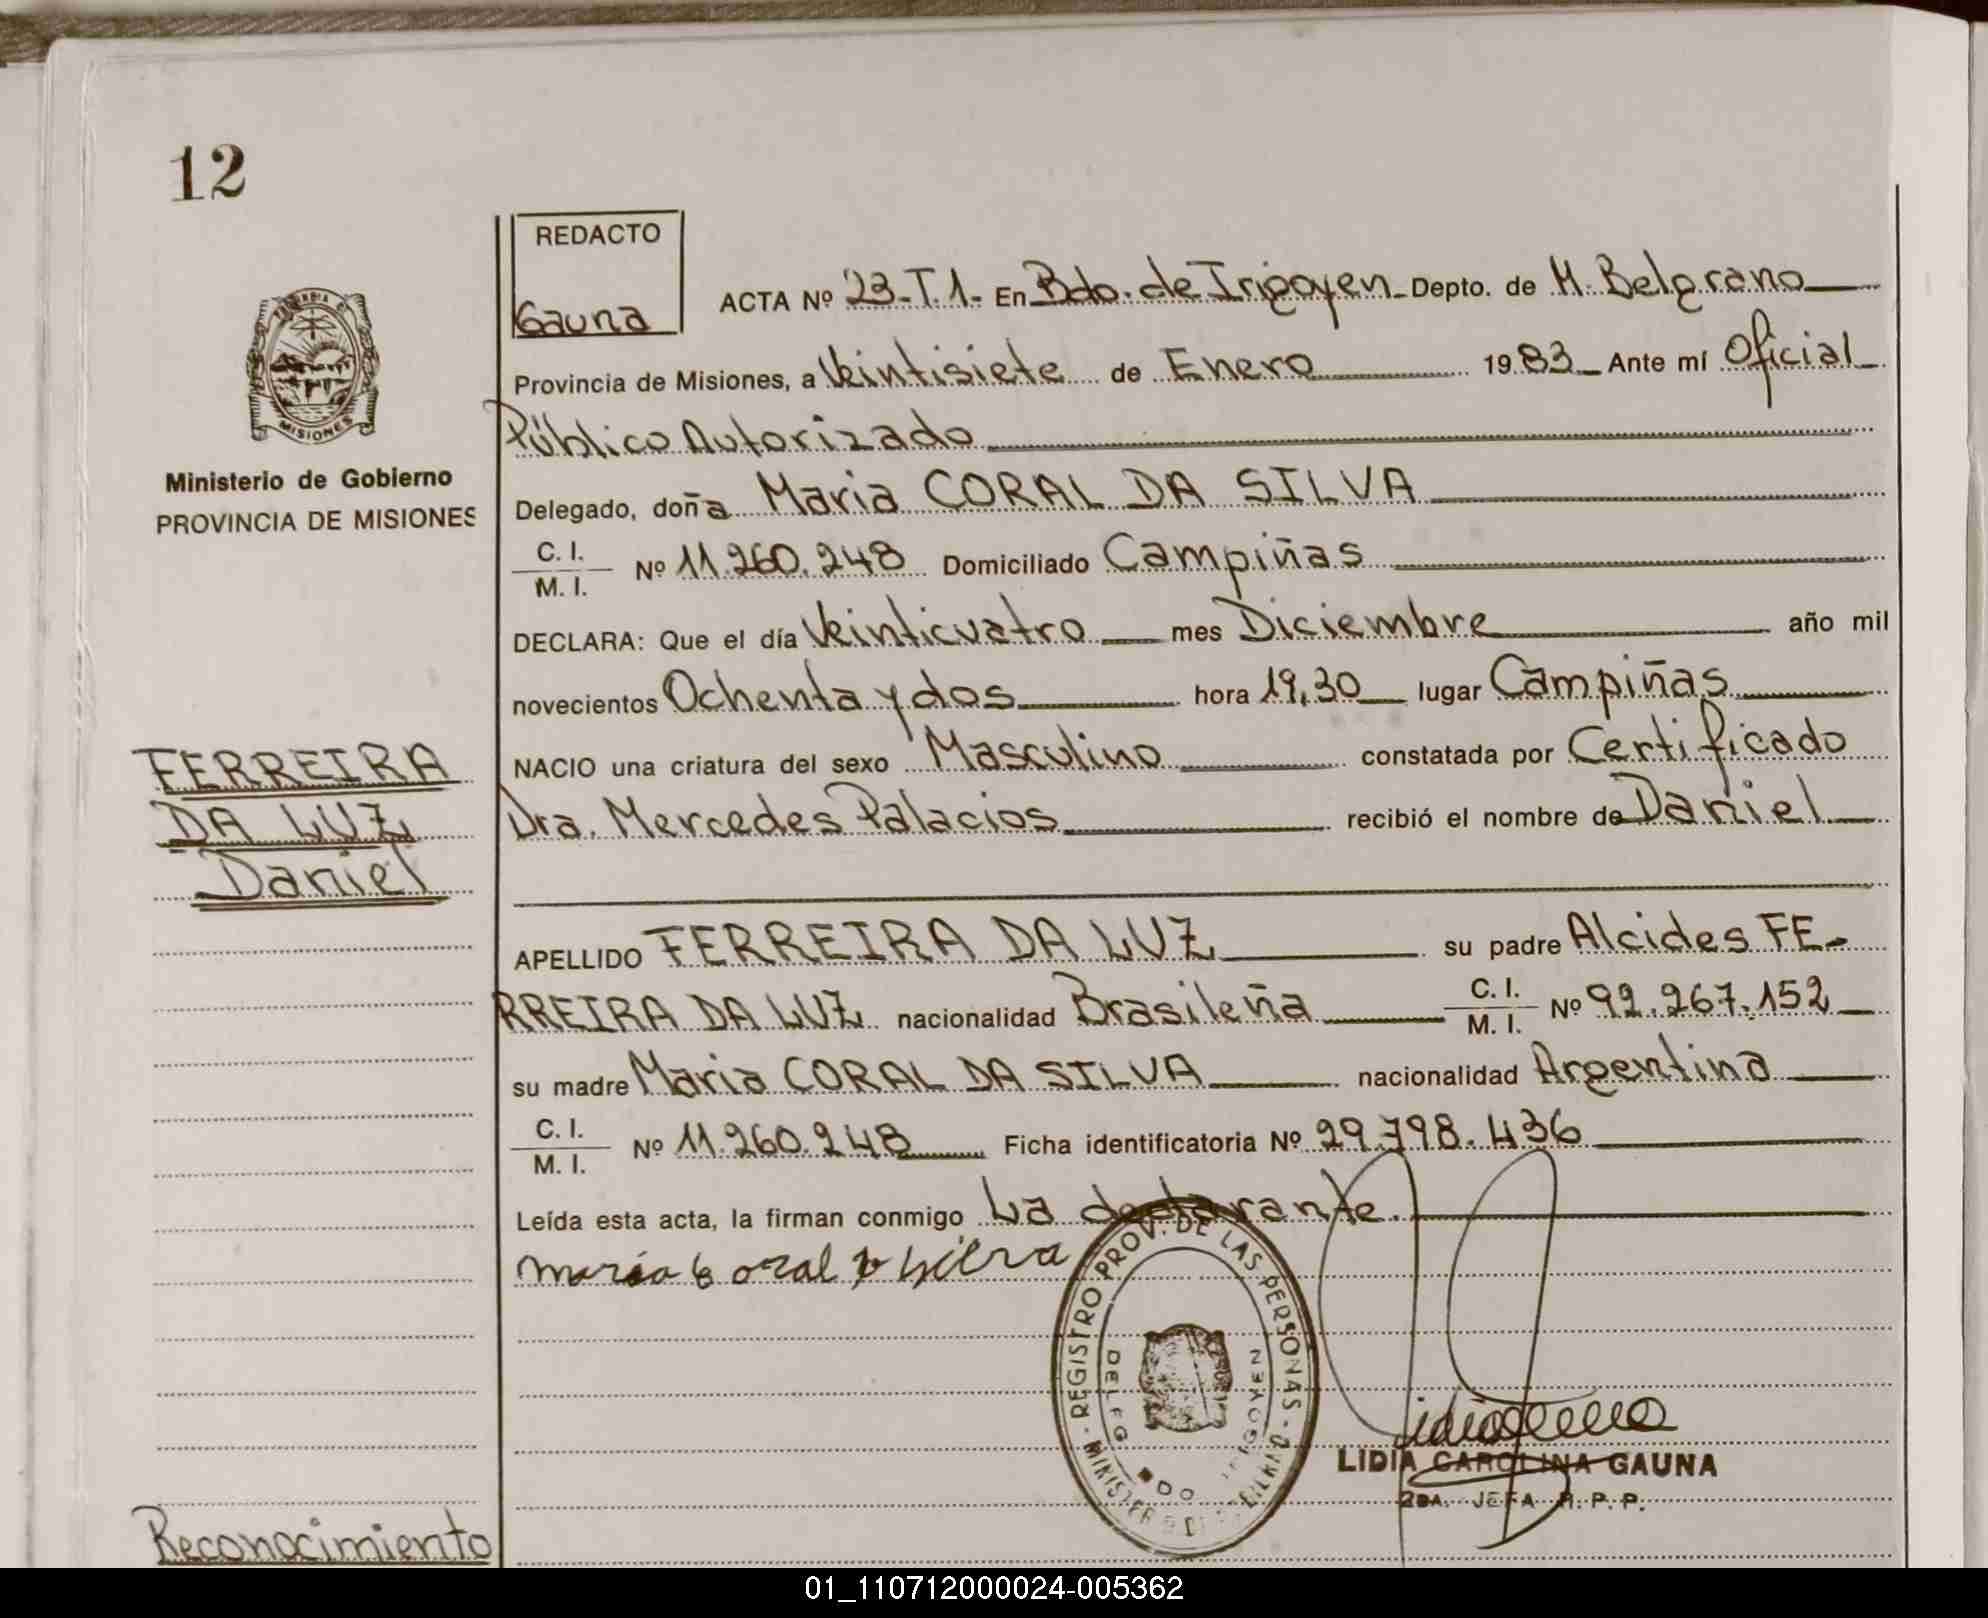 12
REDACTO
Gauna
ACTA Nº 23-T.1- En Bdo. de Irigoyen- Depto. de M. Belgrano
Provincia de Misiones, a Veintisiete de Enero 1983 Ante mí Oficial
Público Autorizado
MISIONES
Ministerio de Gobierno
PROVINCIA DE MISIONES
Delegado, doña Maria CORAL DA SILVA
C. I.
M. I.
Nº 11.260.248 Domiciliado Campiñas
DECLARA: Que el día Veinticuatro mes Diciembre año mil
novecientos Ochenta y dos hora 19,30 lugar Campiñas
NACIO una criatura del sexo Masculino constatada por Certificado
Dra. Mercedes Palacios recibió el nombre de Daniel
FERREIRA
DA LUZ
Daniel
APELLIDO FERREIRA DA LUZ su padre Alcides FE-
RREIRA DA LUZ nacionalidad Brasileña C. I.
M. I. Nº 92.267.152
su madre Maria CORAL DA SILVA nacionalidad Argentina
C. I.
M. I.
Nº 11.260.248 Ficha identificatoria Nº 29.798.436
Leída esta acta, la firman conmigo La declarante.
REGISTRO PROV. DE LAS PERSONAS
LIDIA CAROLINA GAUNA
2DA. JEFA R. P. P.
Reconocimiento
01_110712000024-005362